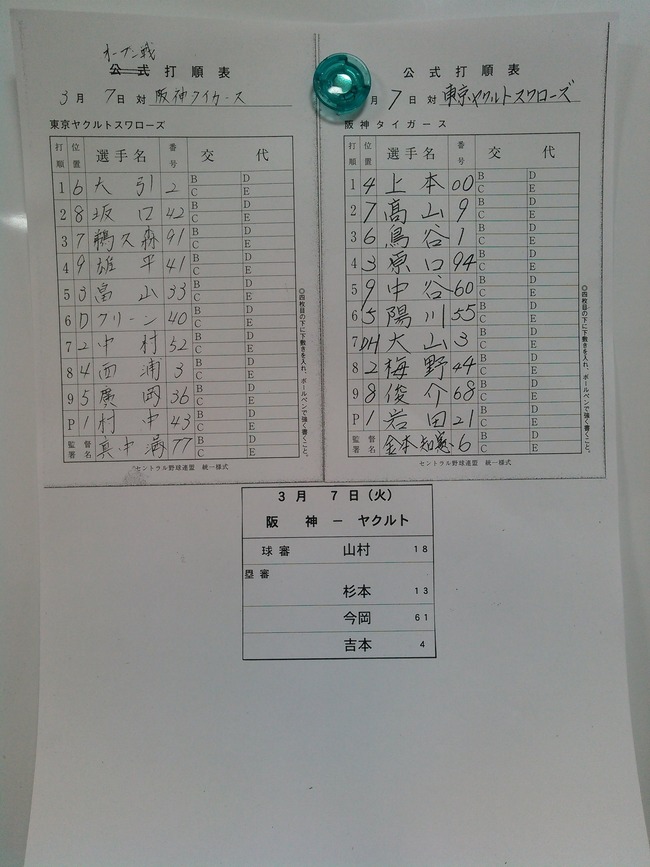 オープン戦
公式打順表
3月 7日 対 阪神タイガース
東京ヤクルトスワローズ
打順 位置 選手名 番号 交代
1 6 大引 2 B C D E
2 8 坂口 42 B C D E
3 7 鵜久森 91 B C D E
4 9 雄平 41 B C D E
5 3 畠山 33 B C D E
6 D グリーン 40 B C D E
7 2 中村 52 B C D E
8 4 西浦 3 B C D E
9 5 廣岡 36 B C D E
P 1 村中 43 B C D E
監督署名 真中満 77 B C D E
◎四枚目の下に下敷きを入れ、ボールペンで強く書くこと。
セントラル野球連盟 統一様式
公式打順表
月 7日 対 東京ヤクルトスワローズ
阪神タイガース
打順 位置 選手名 番号 交代
1 4 上本 00 B C D E
2 7 髙山 9 B C D E
3 6 鳥谷 1 B C D E
4 3 原口 94 B C D E
5 9 中谷 60 B C D E
6 5 陽川 55 B C D E
7 DH 大山 3 B C D E
8 2 梅野 44 B C D E
9 8 俊介 68 B C D E
P 1 岩田 21 B C D E
監督署名 金本知憲 6 B C D E
◎四枚目の下に下敷きを入れ、ボールペンで強く書くこと。
セントラル野球連盟 統一様式
3月 7日(火)
阪神ーヤクルト
球審 山村 18
塁審
杉本 13
今岡 61
吉本 4